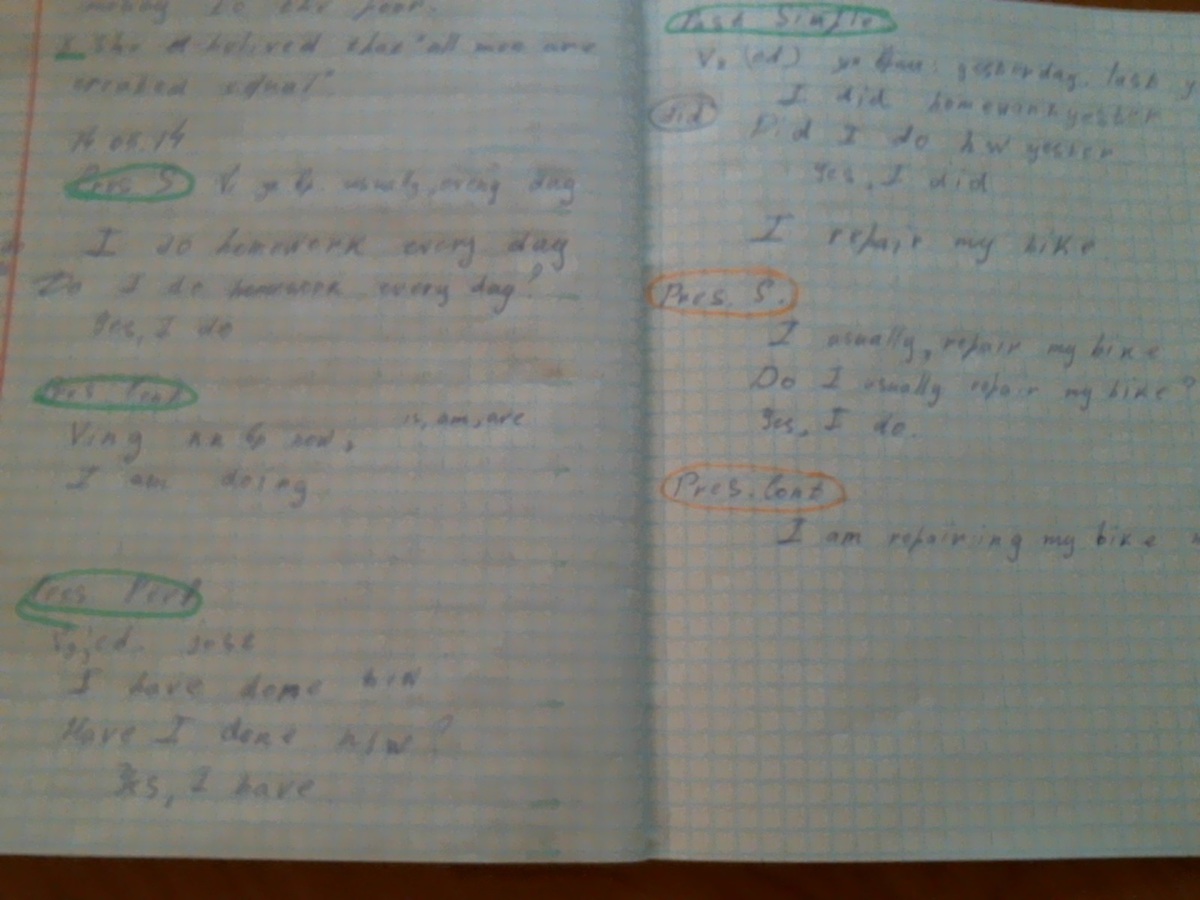 money to the poor.
I She belived that "all men are
created equal"
14.05.14
Pres S V usually, every day
I do homework every day
Do I do homework every day?
Yes, I do
Pres Cont
Ving now, is, am, are
I am doing
Pres Perf
V3, ed. just
I have done h/w
Have I done h/w?
Yes, I have
Past Simple
V2 (ed) yesterday, last
did I did homework yester
Did I do h/w yester
Yes, I did
I repair my bike
Pres. S.
I usually, repair my bike
Do I usually repair my bike?
Yes, I do.
Pres. Cont
I am repairiing my bike